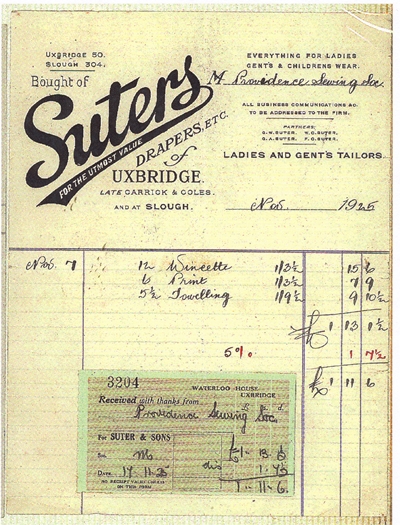 UXBRIDGE 50.
SLOUGH 304.
EVERYTHING FOR LADIES
GENT'S & CHILDRENS WEAR.
Bought of
M Providence Sewing Soc.
Suters
FOR THE UTMOST VALUE
DRAPERS, ETC.
of
UXBRIDGE.
LATE CARRICK & COLES.
AND AT SLOUGH.
ALL BUSINESS COMMUNICATIONS
TO BE ADDRESSED TO THE FIRM.
PARTNERS:
G.H. SUTER. W.G. SUTER.
G.A. SUTER. F.G. SUTER.
LADIES AND GENT'S TAILORS
Nov. 1925
Nov. 7 12 Wincette 1/3½ 15 6
6 Print 1/3½ 7 9
5½ Towelling 1/9½ 9 10½
£ 1 13 1½
5% 1 7½
£ 1 11 6
3204
WATERLOO HOUSE
UXBRIDGE
Received with thanks from
Providence Sewing Soc
£ s d
For SUTER & SONS
£1 - 13 - 1½
dis 1 - 7½
DATE 17. 11. 25
1 - 11 - 6.
NO RECEIPT VALID UNLESS
ON THIS FORM